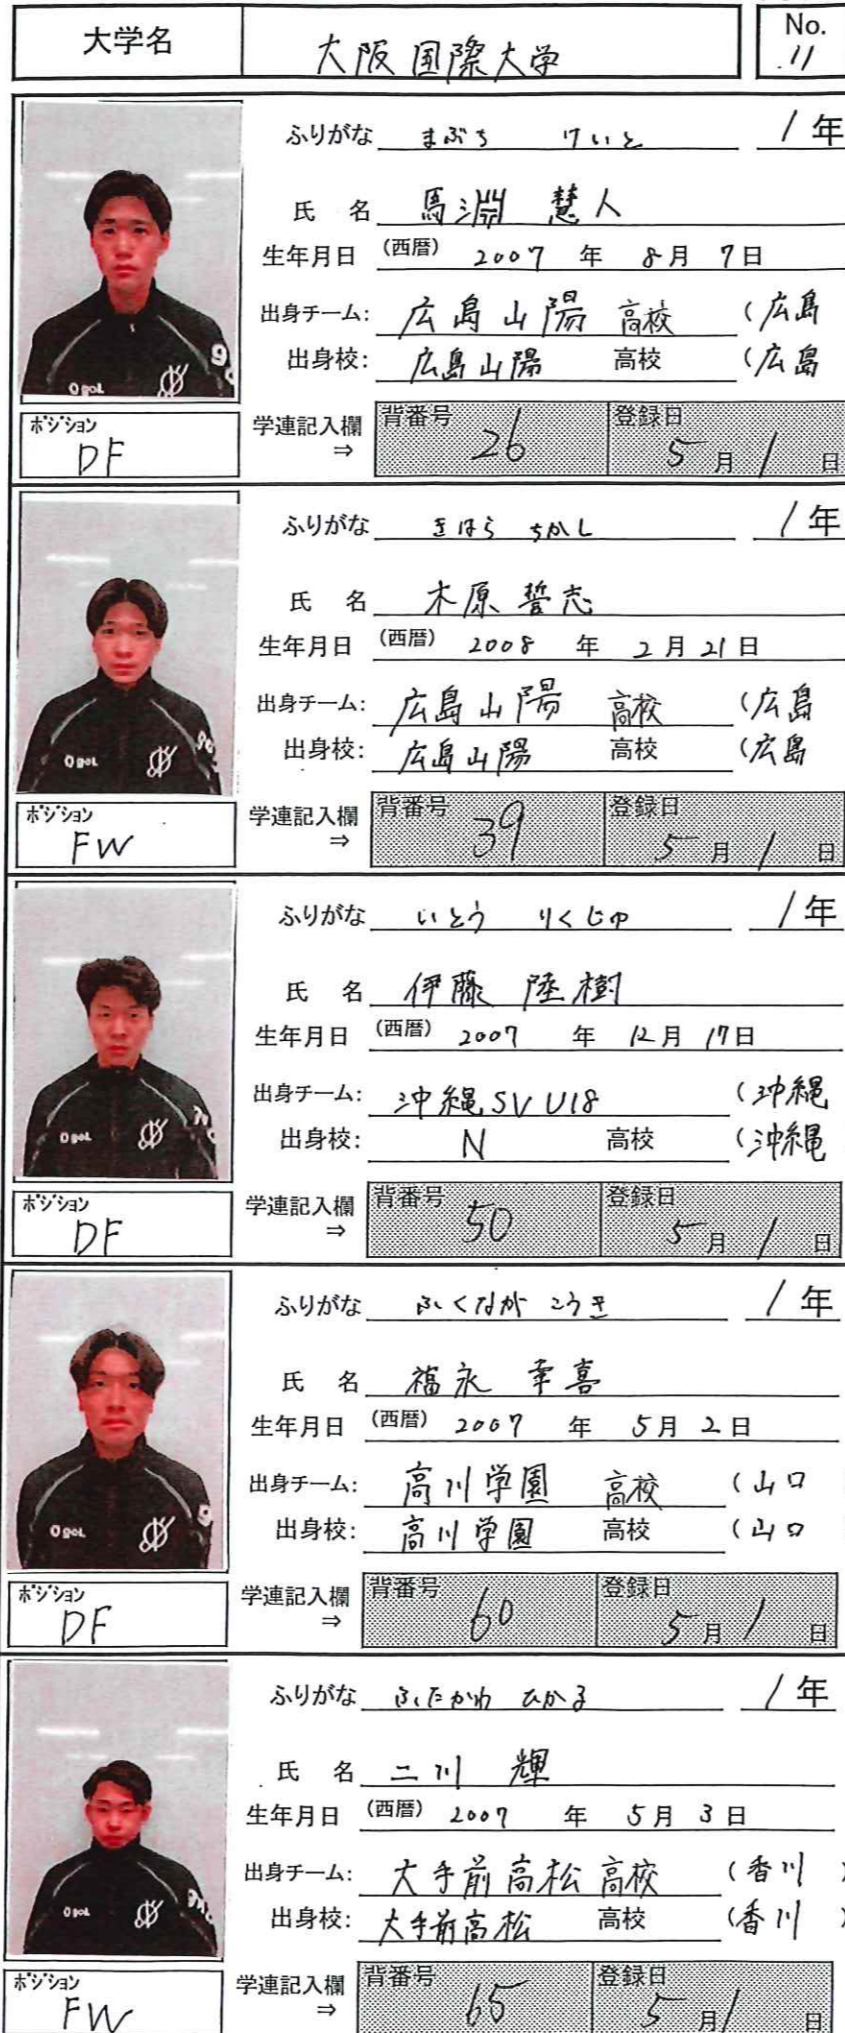 大学名 大阪国際大学 No. 11
ふりがな まぶち けいと 1年
氏 名 馬淵 慧人
生年月日 (西暦) 2007 年 8月 7日
出身チーム: 広島山陽 高校 (広島
出身校: 広島山陽 高校 (広島
ポジション DF
学連記入欄 ⇒ 背番号 26 登録日 5月1日
ふりがな きはら ちかし 1年
氏 名 木原 誓志
生年月日 (西暦) 2008 年 2月21日
出身チーム: 広島山陽 高校 (広島
出身校: 広島山陽 高校 (広島
ポジション FW
学連記入欄 ⇒ 背番号 39 登録日 5月1日
ふりがな いとう りくじゅ 1年
氏 名 伊藤 陸樹
生年月日 (西暦) 2007 年 12月17日
出身チーム: 沖縄SV U18 (沖縄
出身校: N 高校 (沖縄
ポジション DF
学連記入欄 ⇒ 背番号 50 登録日 5月1日
ふりがな ふくなが こうき 1年
氏 名 福永 幸喜
生年月日 (西暦) 2007 年 5月2日
出身チーム: 高川学園 高校 (山口
出身校: 高川学園 高校 (山口
ポジション DF
学連記入欄 ⇒ 背番号 60 登録日 5月1日
ふりがな ふたかわ ひかる 1年
氏 名 二川 輝
生年月日 (西暦) 2007 年 5月3日
出身チーム: 大手前高松 高校 (香川 )
出身校: 大手前高松 高校 (香川 )
ポジション FW
学連記入欄 ⇒ 背番号 65 登録日 5月1日